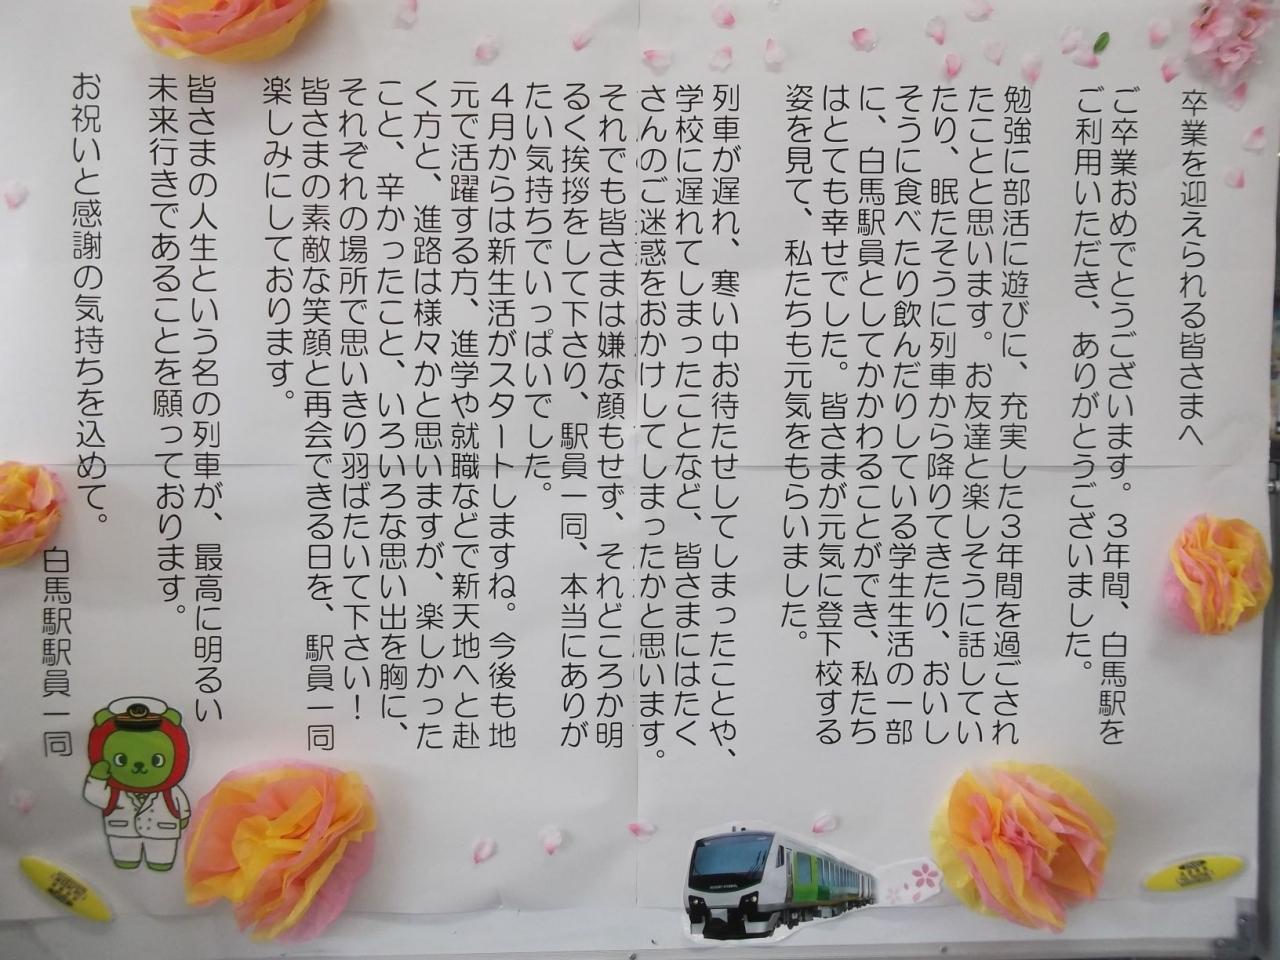 卒業を迎えられる皆さまへ
ご卒業おめでとうございます。３年間、白馬駅を
ご利用いただき、ありがとうございました。
勉強に部活に遊びに、充実した３年間を過ごされ
たことと思います。お友達と楽しそうに話してい
たり、眠たそうに列車から降りてきたり、おいし
そうに食べたり飲んだりしている学生生活の一部
に、白馬駅員としてかかわることができ、私たち
はとても幸せでした。皆さまが元気に登下校する
姿を見て、私たちも元気をもらいました。
列車が遅れ、寒い中お待たせしてしまったことや、
学校に遅れてしまったことなど、皆さまにはたく
さんのご迷惑をおかけしてしまったかと思います。
それでも皆さまは嫌な顔もせず、それどころか明
るく挨拶をして下さり、駅員一同、本当にありが
たい気持ちでいっぱいでした。
４月からは新生活がスタートしますね。今後も地
元で活躍する方、進学や就職などで新天地へと赴
く方と、進路は様々かと思いますが、楽しかった
こと、辛かったこと、いろいろな思い出を胸に、
それぞれの場所で思いきり羽ばたいて下さい！
皆さまの素敵な笑顔と再会できる日を、駅員一同
楽しみにしております。
皆さまの人生という名の列車が、最高に明るい
未来行きであることを願っております。
お祝いと感謝の気持ちを込めて。
白馬駅駅員一同